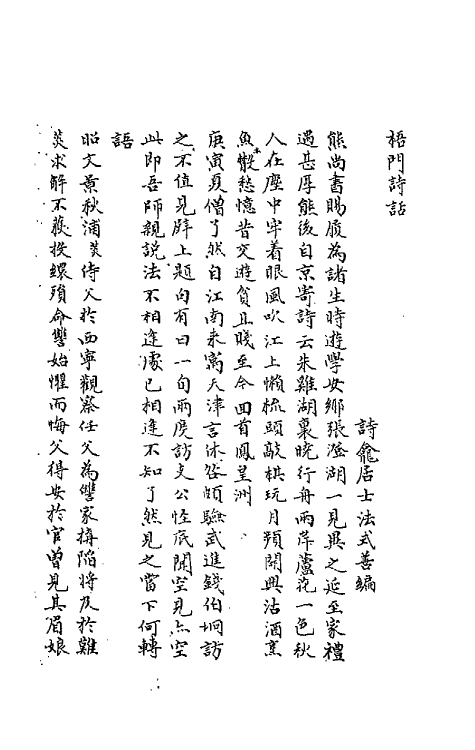 梧門詩話
詩龕居士法式善編
熊尚書賜履為諸生時遊學安鄉張澹湖一見異之延至家禮
遇甚厚熊後自京寄詩云朱雞湖裏曉行舟兩岸蘆花一色秋
人在塵中牢着眼風吹江上懶梳頭敲棋玩月頻開興沽酒烹
魚散愁憶昔交遊貧且賤至今回首鳳皇洲
庚寅夏僧了然自江南來寓天津言休咎頗驗武進錢伯坰訪
之不值見壁上題句有曰一句兩度訪支公性底開空見亦空
此即吾師親說法不相逢處已相逢不知了然見之當下何轉
語
昭文景秋浦炎侍父於西寧觀察任父為讐家搆陷將及於難
炎求解不獲投繯殞命讐始懼而悔父得安於官曾見其眉娘